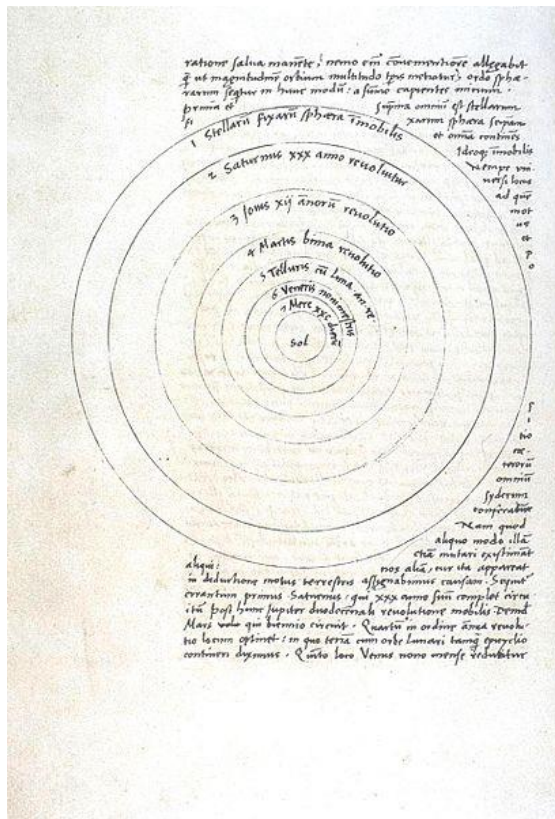 ratione salua manēte, nemo em̄ conuenientiorē allegabit
q̃ ut magnitudinē orbium multitudo tp̄is metiatur, ordo sphæ-
rarum sequitur in hunc modū: a sūmo capientes initium.
prima et suprema omniū est stellarum
fi xarum sphæra seipsam
et omnia continēs
Ideoq; īmobilis
Nempe uni-
uersi locus
ad quē
mot
us
et
p
o
1 Stellarū fixarū sphæra īmobilis
2 Saturnus xxx anno reuoluitur
3 Jouis xij annorū reuolutio
4 Martis bima reuolutio
5 Telluris cū Luna an. re.
6 Veneris nonimestris
7 Merc xxc dierū
Sol
S
i
tio
cæ-
terorū
omniū
syderum
conferatur
Nam quod
aliquo modo illā
etiā mutari existimāt
aliqui: nos aliā, cur ita appareat
in deductione motus terrestris assignabimus causam. Sequitur
errantium primus Saturnus: qui xxx anno suū complet circu
itū post hunc Jupiter duodecennali reuolutione mobilis Demū
Mars uelo qui biennio circuit. Quartū in ordine ānua reuolu-
tio locum optinet: in quo terrā cum orbe lunari tanq̃ epicyclio
contineri diximus. Quinto loco Venus nono mense reducitur